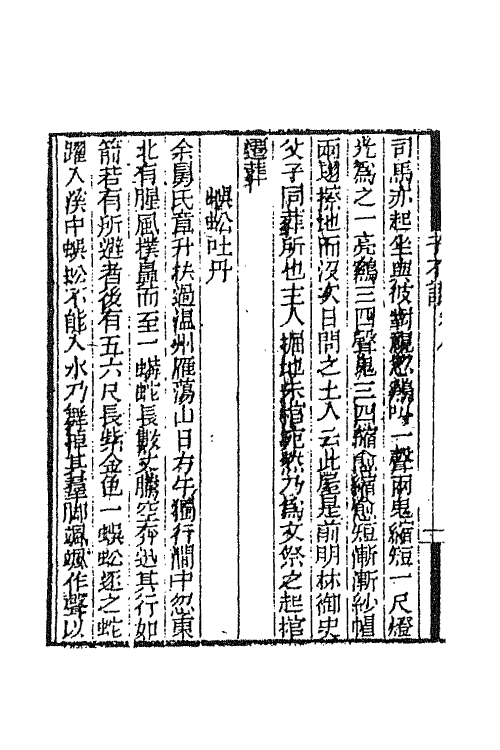 司馬亦起坐與彼對視忽鷄叫一聲兩鬼縮短一尺燈
光為之一亮鷄三四聲鬼三四縮愈縮愈短漸漸紗帽
兩翅擦地而沒次日問之土人云此屋是前明林御史
父子同葬所也主人掘地朱棺宛然乃為文祭之起棺
遷葬
蜈蚣吐丹
余舅氏章升扶過温州雁蕩山日方午獨行澗中忽東
北有腥風撲鼻而至一蟒蛇長數丈騰空奔迅其行如
箭若有所避者後有五六尺長紫金色一蜈蚣逐之蛇
躍入溪中蜈蚣不能入水乃舞掉其羣脚颯颯作聲以